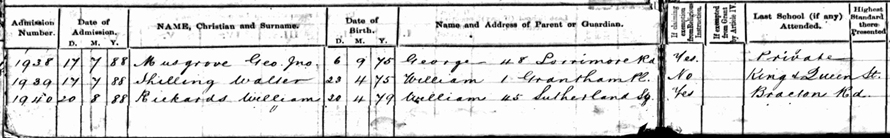 Admission Number. Date of Admission. NAME, Christian and Surname. Date of Birth. Name and Address of Parent or Guardian. If claiming exemption from Religious Instruction. If exempted from Grant by Article IV. Last School (if any) Attended. Highest Standard there Presented
D. M. Y. D. M. Y.
1938 17 7 88 Musgrove Geo. Jno. 6 9 75 George 48 Lorrimore Rd Yes. Private
1939 17 7 88 Shilling Walter 23 4 75 William 1 Grantham Pl. No King & Queen St.
1940 20 8 88 Rickards William 20 4 79 William 45 Sutherland Sq. Yes Bracton Rd.